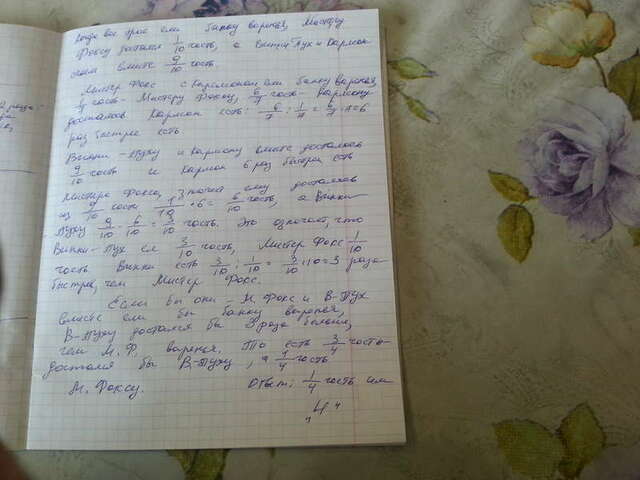 Когда все трое ели банку варенья, Мистеру
Фоксу достался 1/10 часть, а Винни Пух и Карлсон
съели вместе 9/10 часть.
Мистер Фокс с Карлсоном ели банку варенья,
1/7 часть - Мистеру Фоксу, 6/7 часть - Карлсону
досталось Карлсон есть: 6/7 : 1/7 = 6/7 · 7 = 6
раз быстрее есть
Винни - Пуху и Карлсону вместе досталось
9/10 часть и Карлсон 6 раз быстрее есть
Мистера Фокса, значит ему досталось
из 9/10 части 1/10 · 6 = 6/10 часть, а Винни
Пуху 9/10 - 6/10 = 3/10 часть. Это означает, что
Винни - Пух ел 3/10 часть, Мистер Фокс 1/10
часть Винни есть 3/10 : 1/10 = 3/10 · 10 = 3 раза
быстрее, чем Мистер Фокс.
Если бы они - М. Фокс и В-Пух
вместе ели бы банку варенья,
В-Пуху достался бы 3 раза больше,
чем М.Ф. варенья. То есть 3/4 часть
достался бы В-Пуху, а 1/4 часть
М. Фоксу. Ответ: 1/4 часть или
1/4